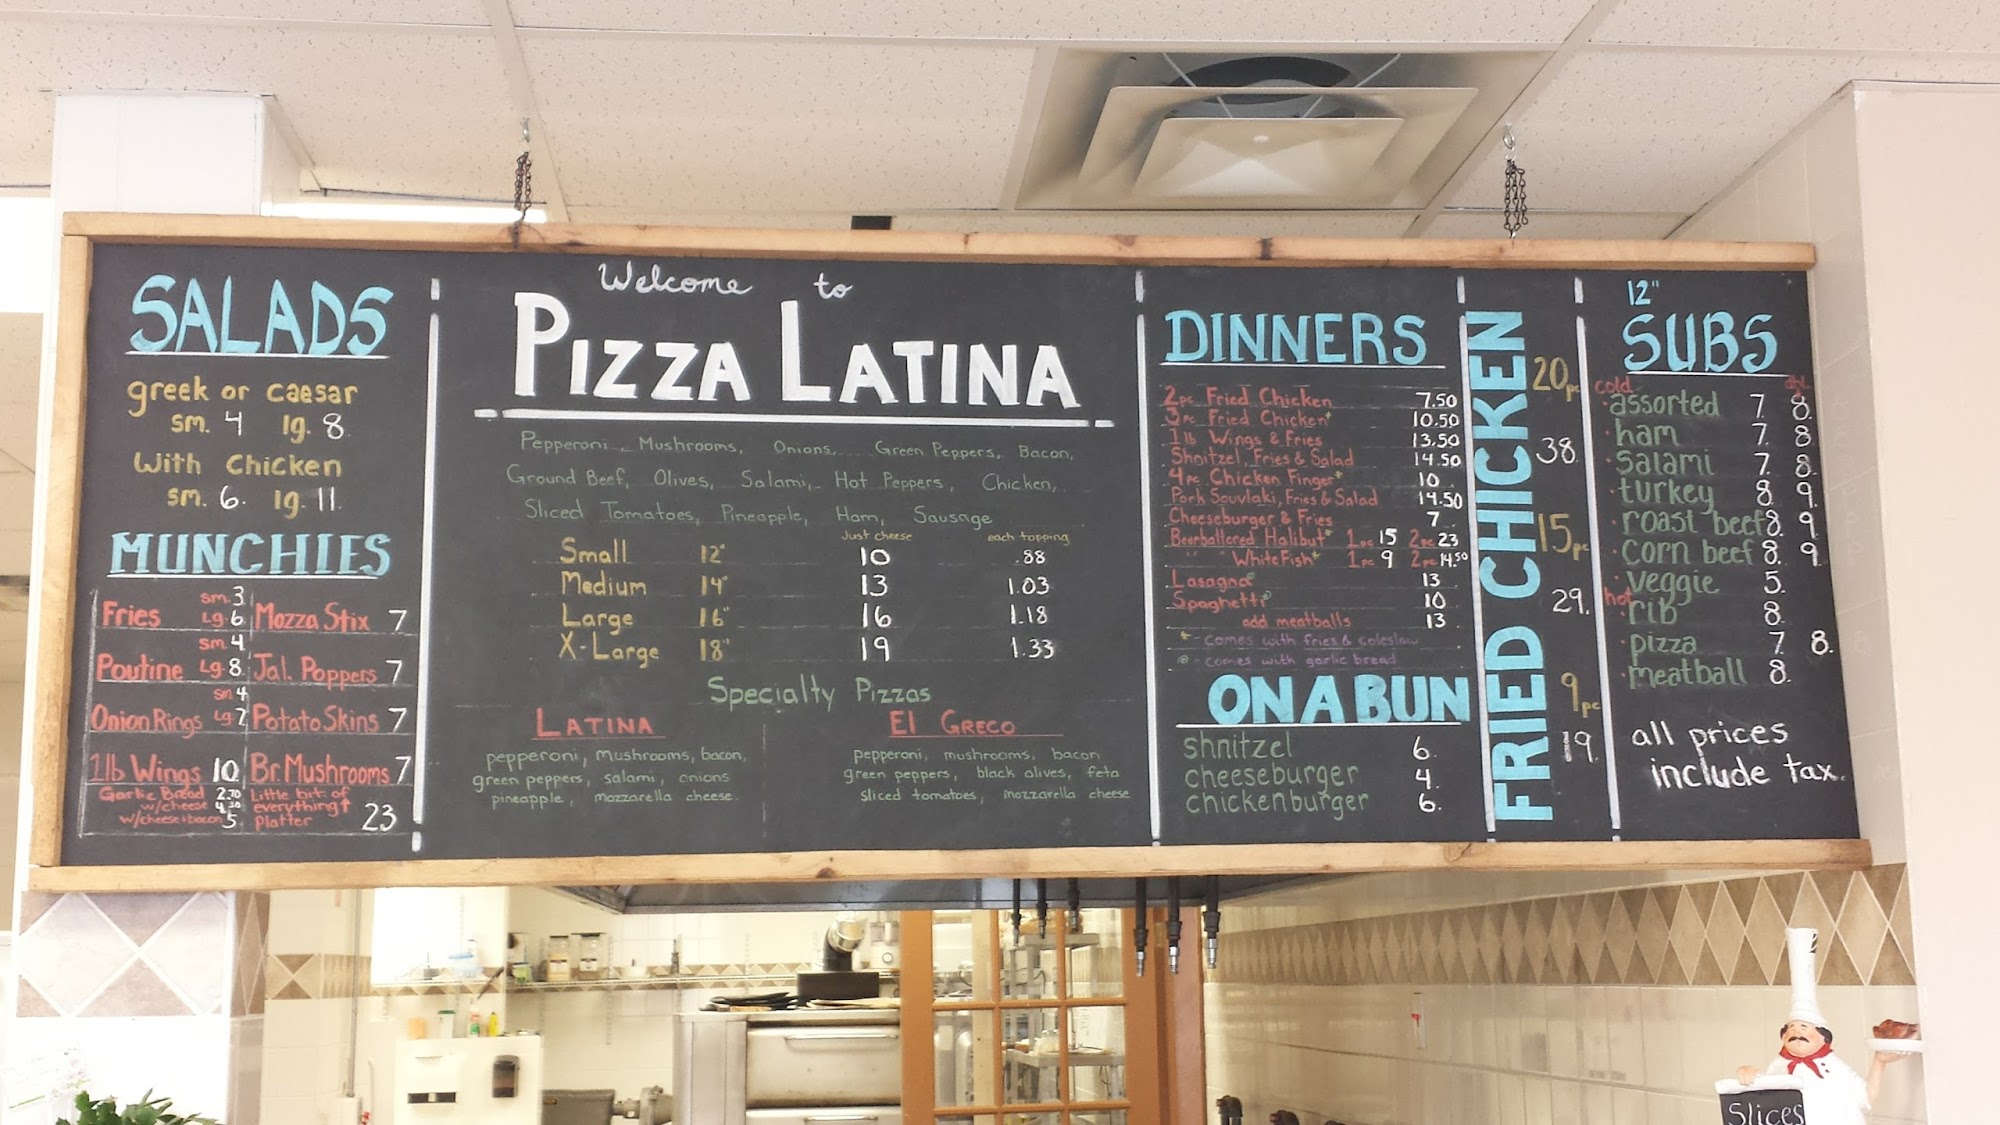 SALADS
greek or caesar
sm. 4 lg. 8
with chicken
sm. 6. lg. 11.
MUNCHIES
Fries sm. 3. Lg. 6
Mozza Stix 7
Poutine sm. 4 Lg. 8
Jal. Poppers 7
Onion Rings sm 4 Lg 7
Potato Skins 7
1lb Wings 10
Br. Mushrooms 7
Garlic Bread 2.70
w/cheese
w/cheese & bacon 5
Little bit of
everything
platter 23
Welcome to
PIZZA LATINA
Pepperoni, Mushrooms, Onions, Green Peppers, Bacon,
Ground Beef, Olives, Salami, Hot Peppers, Chicken,
Sliced Tomatoes, Pineapple, Ham, Sausage
just cheese each topping
Small 12" 10 .88
Medium 14" 13 1.03
Large 16" 16 1.18
X-Large 18" 19 1.33
Specialty Pizzas
LATINA
pepperoni, mushrooms, bacon,
green peppers, salami, onions
pineapple, mozzarella cheese.
El GRECO
pepperoni, mushrooms, bacon
green peppers, black olives, feta
sliced tomatoes, mozzarella cheese
DINNERS
2pc Fried Chicken 7.50
3pc Fried Chicken* 10.50
1 lb Wings & Fries 13.50
Shnitzel, Fries & Salad 14.50
4pc Chicken Finger* 10
Pork Souvlaki, Fries & Salad 14.50
Cheeseburger & Fries 7
Beerbattered Halibut* 1pc 15 2pc 23
" " White Fish* 1pc 9 2pc 14.50
Lasagna@ 13
Spaghetti@ 10
add meatballs 13
* - comes with fries & coleslaw
@ - comes with garlic bread
ON A BUN
shnitzel 6.
cheeseburger 4.
chickenburger 6.
FRIED CHICKEN
20pc
38.
15pc
29.
9pc
19.
12"
SUBS
cold dbl
assorted 7. 8.
ham 7. 8
salami 7. 8.
turkey 8. 9.
roast beef 8. 9
corn beef 8. 9
veggie 5.
hot
rib 8.
pizza 7. 8.
meatball 8.
all prices
include tax.
Slices